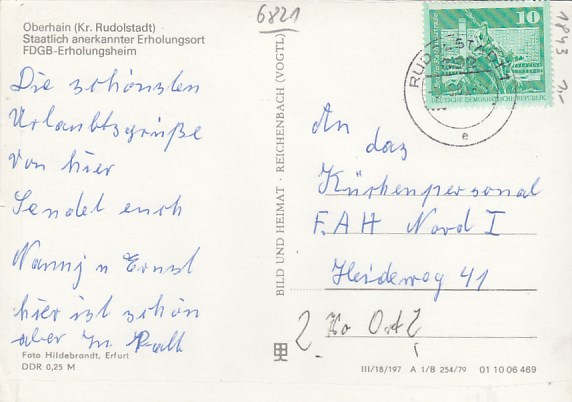 Oberhain (Kr. Rudolstadt)
Staatlich anerkannter Erholungsort
FDGB-Erholungsheim
6821
Die schönsten
Urlaubsgrüße
von hier
Sendet euch
Nannj u Ernst
hier ist schön
aber zu kalt
Foto Hildebrandt, Erfurt
DDR 0,25 M
BILD UND HEIMAT · REICHENBACH (VOGTL)
10
DEUTSCHE DEMOKRATISCHE REPUBLIK
RUDOLSTADT 1
e
1843
An
das
Küchenpersonal
F.A H Nord I
Heideweg 41
III/18/197 A 1/B 254/79 01 10 06 469